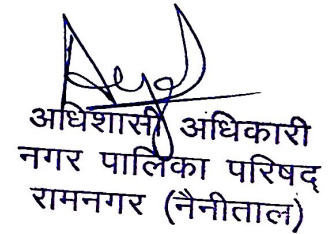 अधिशासी अधिकारी
नगर पालिका परिषद
रामनगर (नैनीताल)